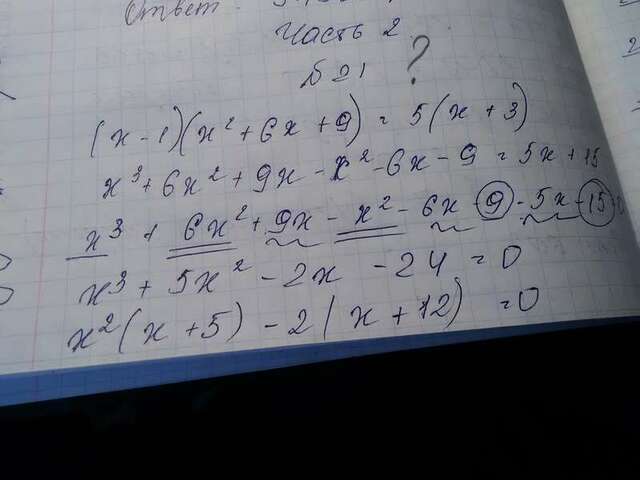 Ответ
Часть 2
№21 ?
(x-1)(x²+6x+9) = 5(x+3)
x³+6x²+9x-x²-6x-9=5x+15
x³+6x²+9x-x²-6x-9-5x-15=0
x³+5x²-2x-24=0
x²(x+5)-2(x+12)=0